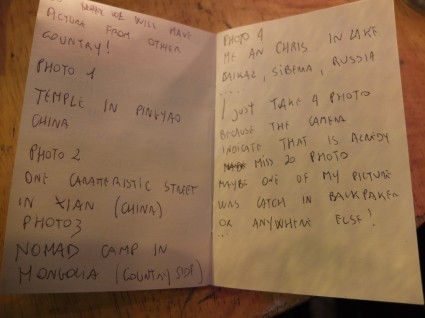 WHAT WE WILL HAVE
PICTURE FROM OTHER
COUNTRY!
PHOTO 1
TEMPLE IN PINGYAO
CHINA
PHOTO 2
ONE CARATTERISTIC STREET
IN XIAN (CHINA)
PHOTO 3
NOMAD CAMP IN
MONGOLIA (COUNTRY SIDE)
PHOTO 4
ME AN CHRIS IN LAKE
BAIKAL, SIBERIA, RUSSIA
....
I JUST TAKE 4 PHOTO
BECAUSE THE CAMERA
INDICATE THAT IS ALREDY
MISS 20 PHOTO
MAYBE ONE OF MY PICTURE
WAS CATCH IN BACKPAKER
OR ANYWHERE ELSE!
...